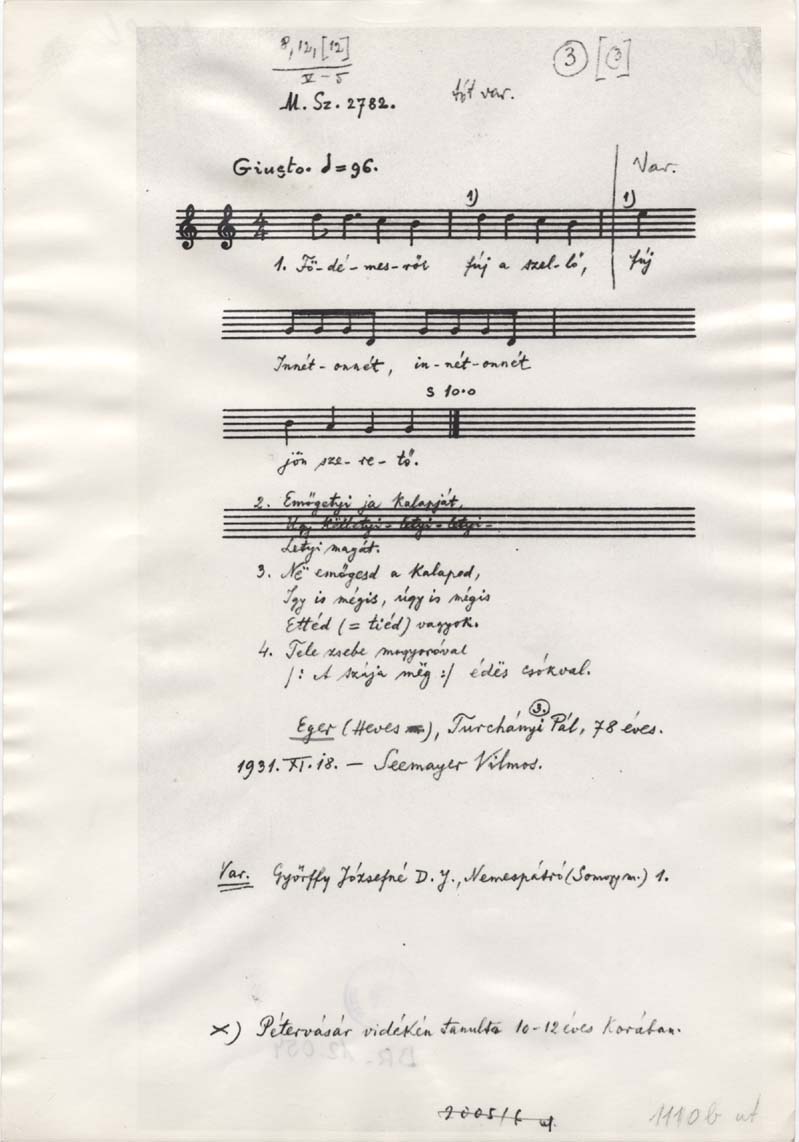 8, 12, [12]
V-5
3 [3]
M. Sz. 2782.
tót var.
Giusto. d=96.
Var.
1) 1)
1. Fö-dé-mes-röl fúj a szel-lő, fúj
Innét-onnét, in-nét-onnét
S 10.0
jön sze-re-tő.
2. Emőgetyi ja kalapját,
Ugy költetyi-letyi-letyi-
Letyi magát.
3. Në emőgesd a kalapod,
Igy is mégis, úgy is mégis
Ettéd (= tiéd) vagyok.
4. Tele zsebe mogyoróval
/: A szája mëg :/ édës csókval.
Eger (Heves), Turchányi Pál, 78 éves.
3.
1931. XI. 18. — Seemayer Vilmos.
Var. Györffy Józsefné D. J., Nemespátró (Somogy m.) 1.
x) Pétervásár vidékén tanulta 10-12 éves korában.
2005/6 ut.
1110b ut